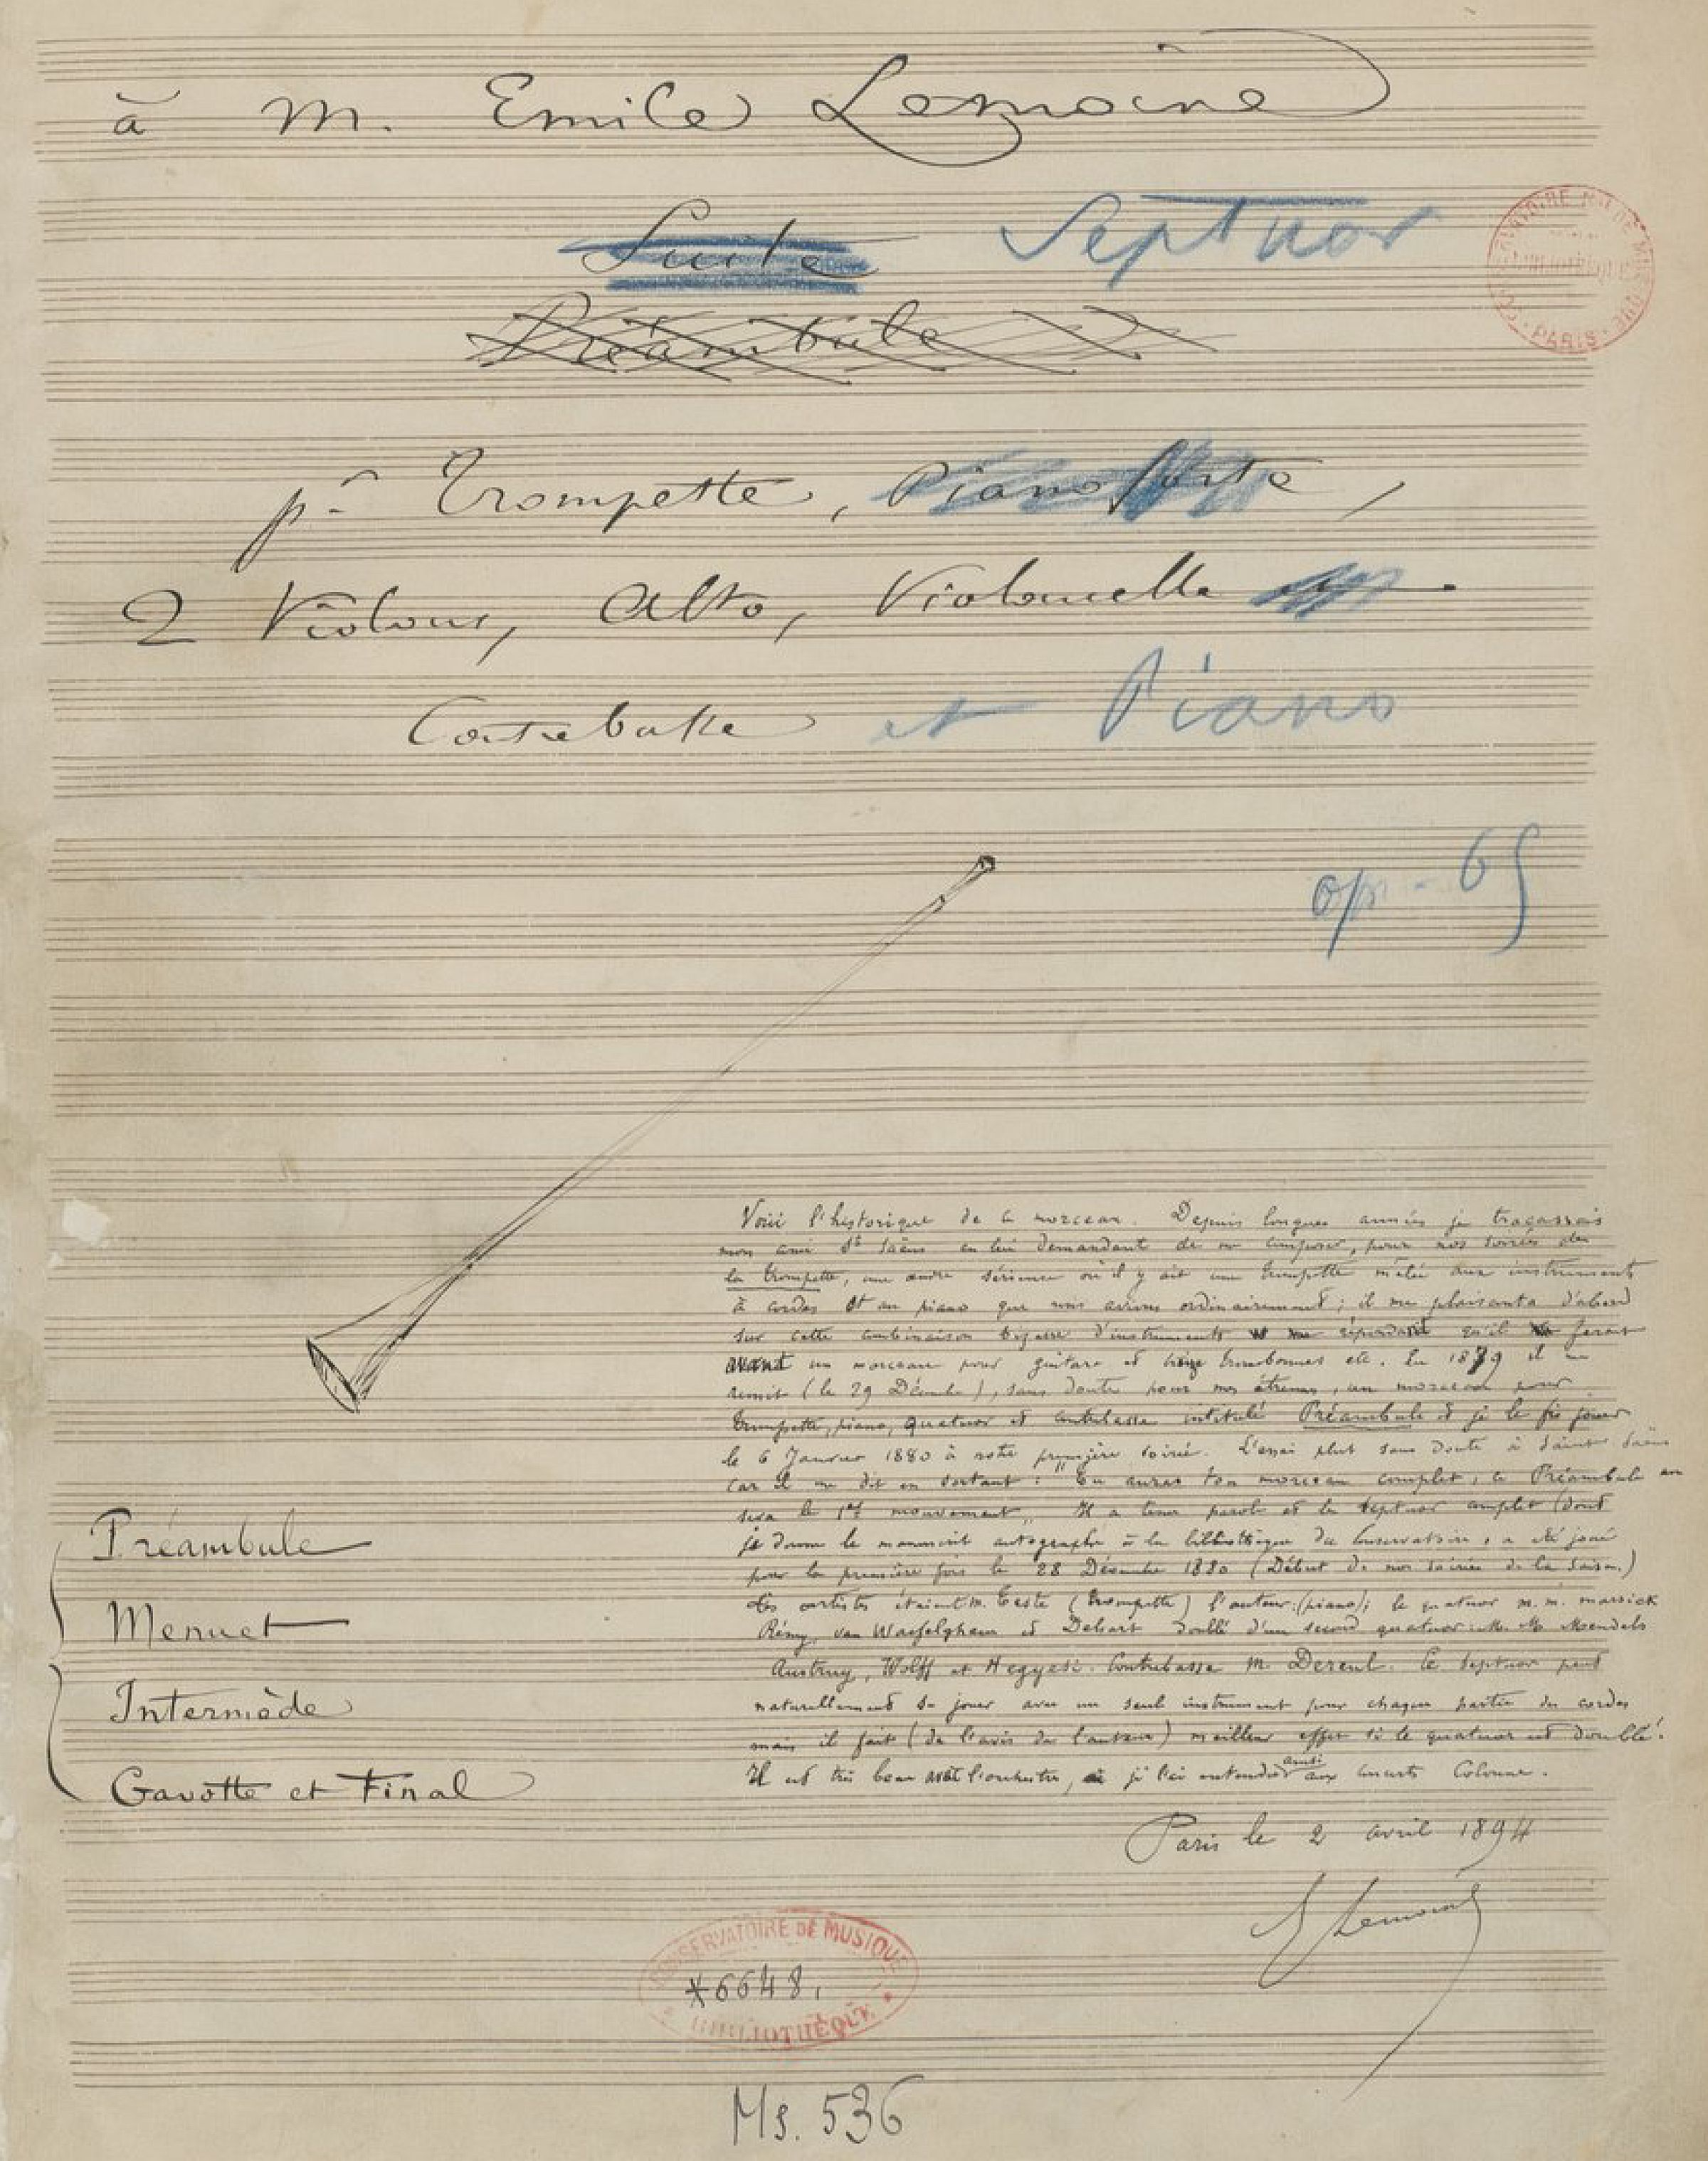 à M. Emile Lemoine
Suite Septuor
Préambule
pr Trompette, Piano forte,
2 Violons, Alto, Violoncelle
Contrebasse et Piano
op. 65
Voici l'historique de ce morceau. Depuis longues années je tracassais
mon ami St Saëns en lui demandant de me composer, pour nos soirées de
la trompette, une œuvre sérieuse où il y ait une trompette mêlée aux instruments
à cordes et au piano que nous avions ordinairement ; il me plaisanta d'abord
sur cette combinaison bizarre d'instruments me répondant qu'il ferait
avant un morceau pour guitare et treize trombones etc. En 1879 il me
remit (le 29 Décembre), sans doute pour mes étrennes, un morceau pour
trompette, piano, quatuor et contrebasse intitulé Préambule et je le fis jouer
le 6 Janvier 1880 à notre première soirée. L'essai plut sans doute à Saint Saëns
car il me dit en sortant : "Tu auras ton morceau complet, le Préambule en
sera le 1er mouvement„ Il a tenu parole et le septuor complet (dont
je donne le manuscrit autographe à la bibliothèque du Conservatoire, a été joué
pour la première fois le 28 Décembre 1880 (Début de nos soirées de la saison.)
Les artistes étaient M. Teste (trompette) l'auteur (piano); le quatuor M. M. Marsick
Rémy, van Waefelghem et Delsart doublé d'un second quatuor M. M. Mendels
Austruy, Wolff et Hegyesi. Contrebasse M. Dereul. Ce septuor peut
naturellement se jouer avec un seul instrument pour chaque partie de cordes
mais il fait (de l'avis de l'auteur) meilleur effet si le quatuor est doublé.
Il est très beau avec l'orchestre, je l'ai entendu ainsi aux concerts Colonne.
Préambule
Menuet
Intermède
Gavotte et Final
Paris le 2 avril 1894
E Lemoine
CONSERVATOIRE DE MUSIQUE
*6648.
BIBLIOTHÈQUE
Ms. 536
BIBLIOTHÈQUE
PARIS